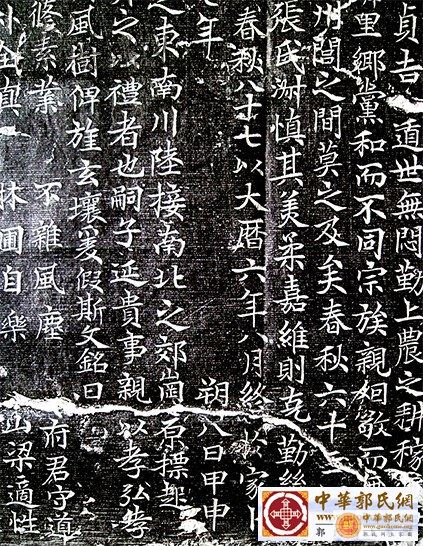 貞吉遁世無悶勤上農之耕稼
里鄉黨和而不同宗族親姻敬而
州閭之間莫之及矣春秋六十
張氏淑慎其美柔嘉維則克勤絲
春秋八十七以大曆六年八月終於家
年 朔八日甲申
之東南川陸接南北之郊崗原標
之以禮者也嗣子延貴事親以孝弘
風樹俾旌玄壤爰假斯文銘曰
脩素業 不雜風塵 府君守道
真 林圃自樂 山梁適性
中華郭氏網
中華郭氏網